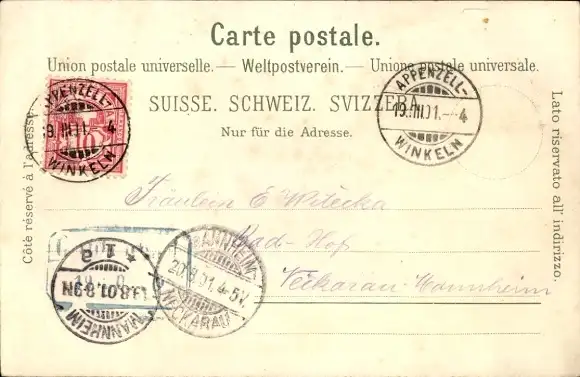 Carte postale.
Union postale universelle. — Weltpostverein. — Unione postale universale.
SUISSE. SCHWEIZ. SVIZZERA.
Nur für die Adresse.
Côté réservé à l'adresse.
Lato riservato all' indirizzo.
APPENZELL-
19.III.01.-4
WINKELN
APPENZELL-
9.III.01. 4
WINKELN
Fräulein E Witecka
Bad-Hof
Neckarau-Mannheim
MANNHEIM
* 1 a
MANNHEIM-
NECKARAU